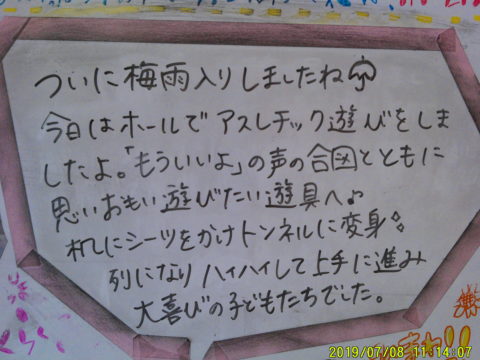 ついに梅雨入りしましたね
今日はホールでアスレチック遊びをしま
したよ。「もういいよ」の声の合図とともに
思いおもい遊びたい遊具へ♪
机にシーツをかけトンネルに変身
列になりハイハイして上手に進み
大喜びの子どもたちでした。
2019/07/08 11:14:07